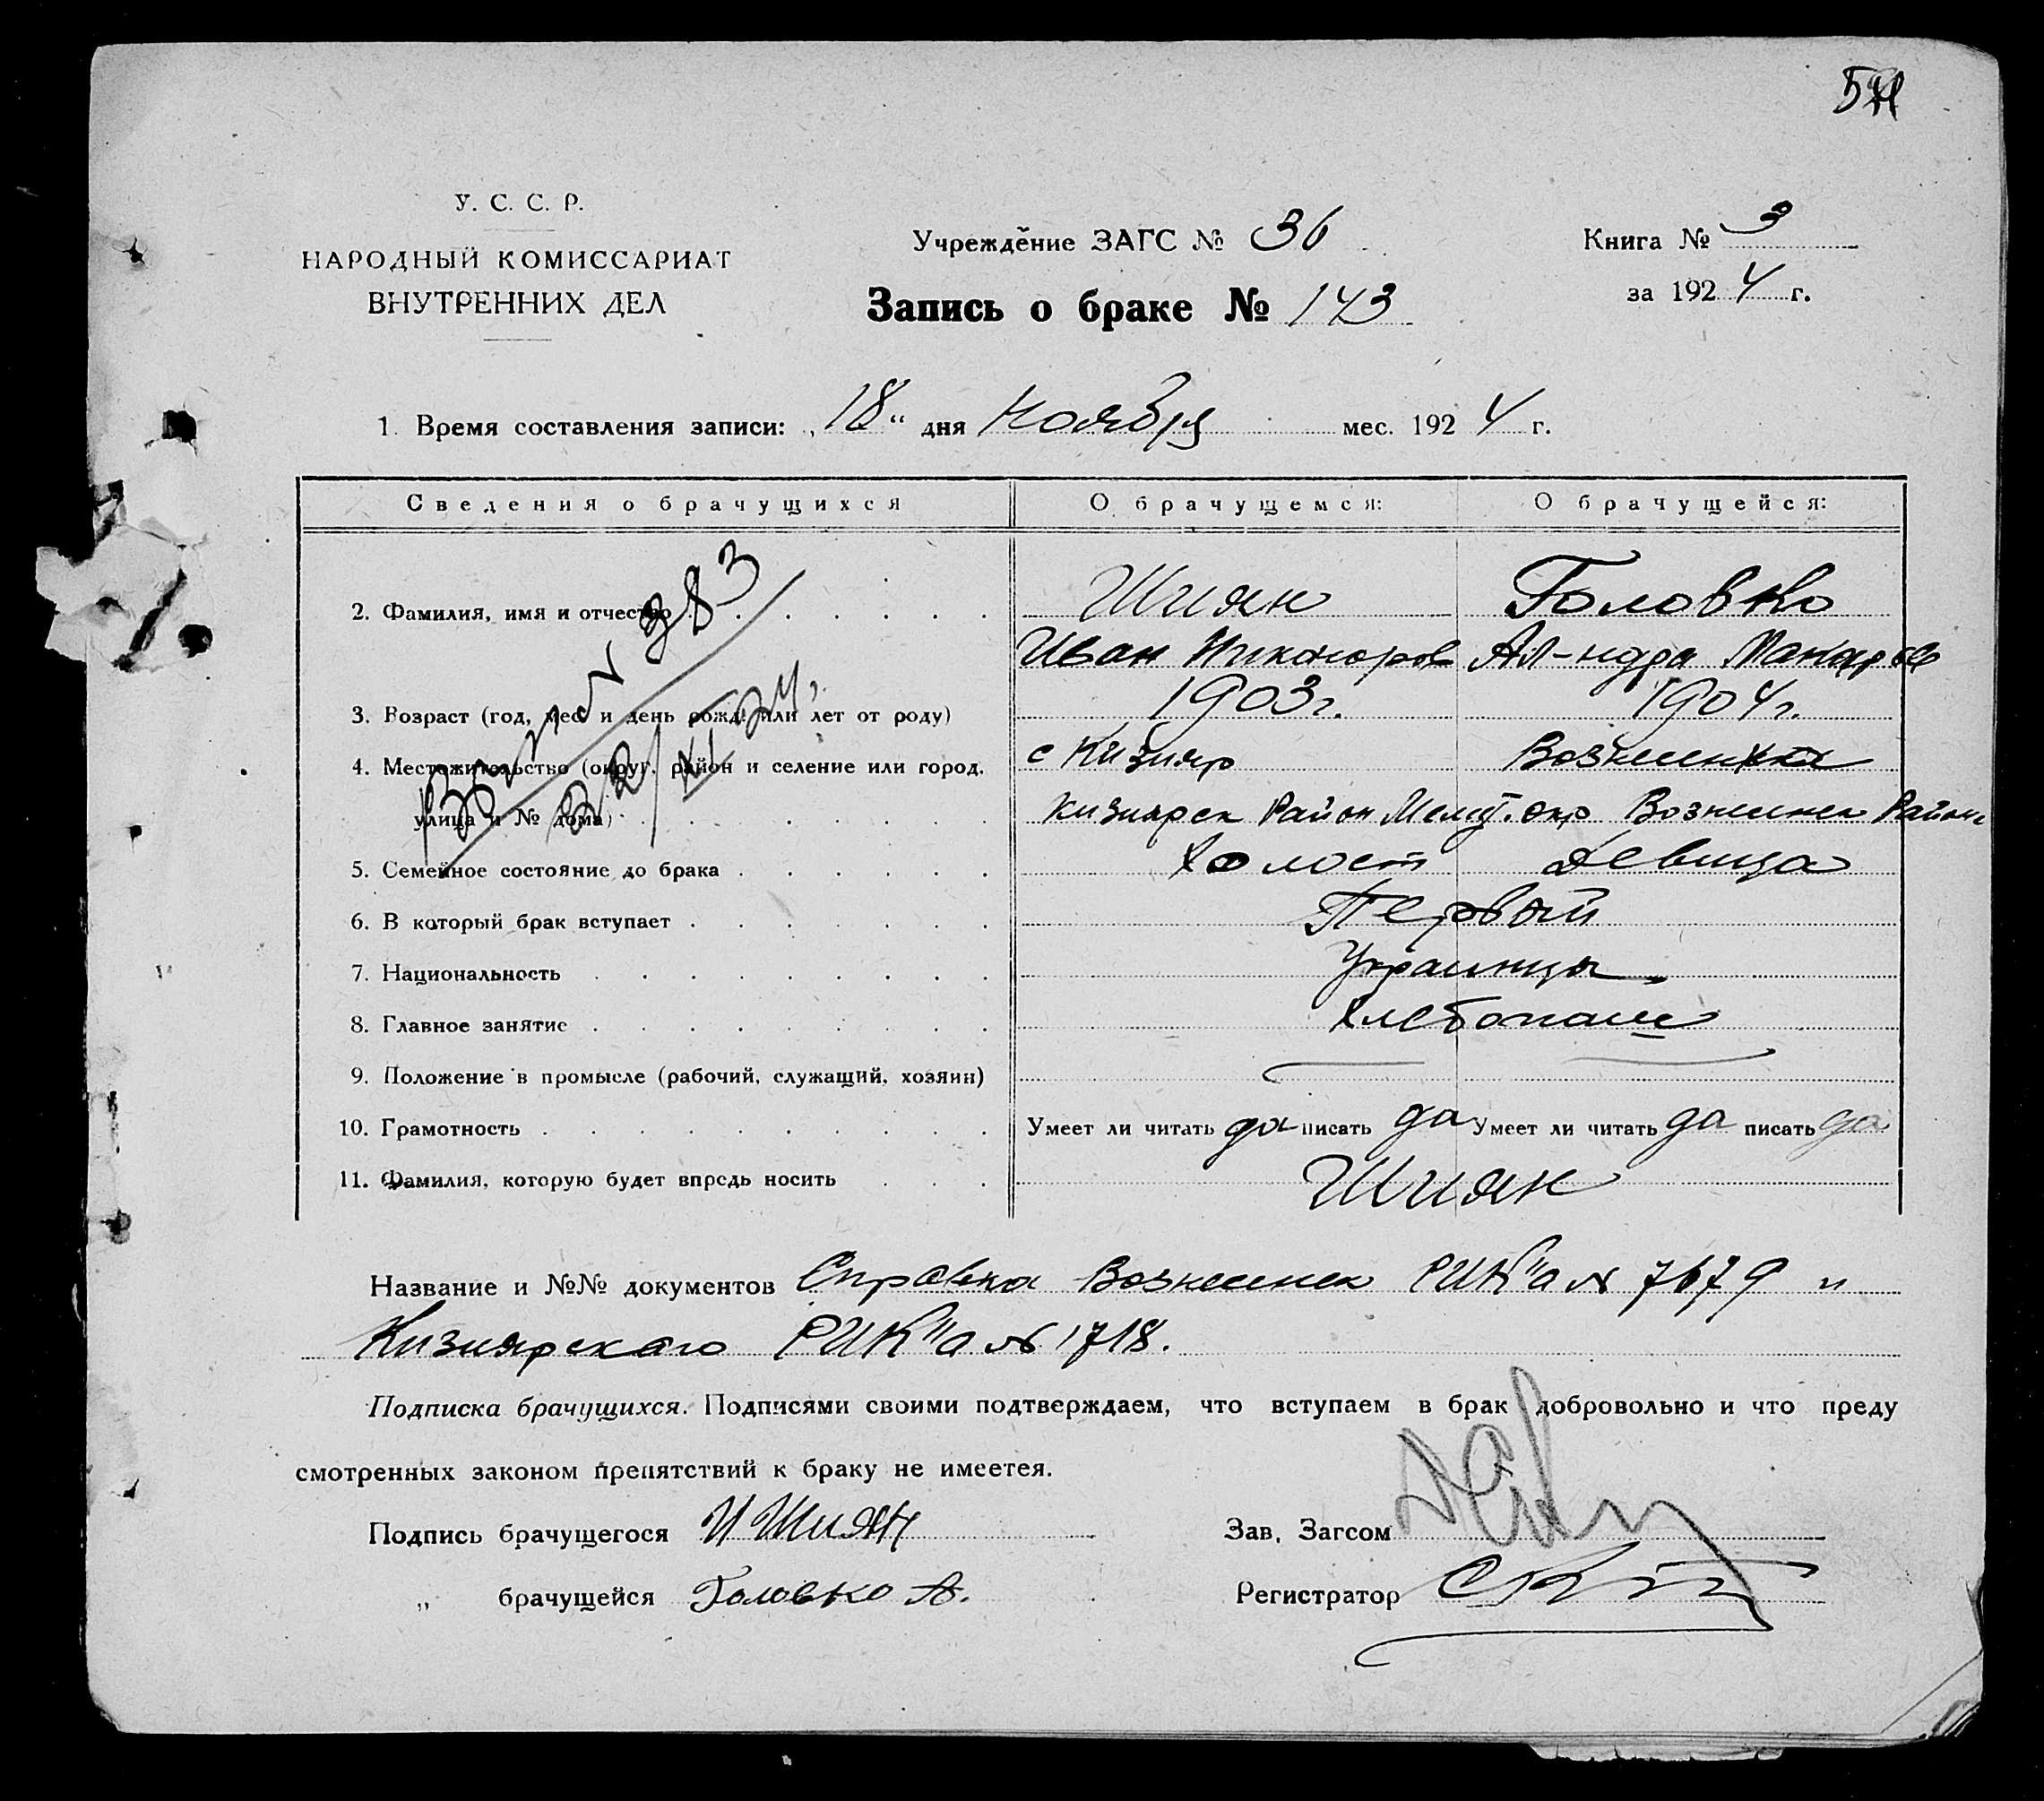 У. С. С. Р.
НАРОДНЫЙ КОМИССАРИАТ
ВНУТРЕННИХ ДЕЛ
Учреждение ЗАГС № 36
Запись о браке № 143
Книга № 3
за 1924 г.
1. Время составления записи: „18“ дня Ноября мес. 1924 г.
Сведения о брачущихся О брачущемся: О брачущейся:
2. Фамилия, имя и отчество Шиян Головко
Иван Никоноров Ал-ндра Макаров
3. Возраст (год, мес. и день рожд. или лет от роду) 1903г. 1904г.
4. Местожительство (округ, район и селение или город, с Кизияр Вознесенка
улица и № дома) Кизиярск Район Мелит. окр Вознесенск Район
5. Семейное состояние до брака Холост Девица
6. В который брак вступает Первый
7. Национальность Украинцы
8. Главное занятие Хлебопаш
9. Положение в промысле (рабочий, служащий, хозяин)
10. Грамотность Умеет ли читать да писать да Умеет ли читать да писать да
11. Фамилия, которую будет впредь носить Шиян
№ 383
22/XI 24
Название и №№ документов Справка Вознесенск РИК"а № 7679 и
Кизиярскаго РИК"а № 1718.
Подписка брачущихся. Подписями своими подтверждаем, что вступаем в брак добровольно и что преду
смотренных законом препятствий к браку не имеетея.
Подпись брачущегося И Шиян Зав. Загсом
„ брачущейся Головко А. Регистратор